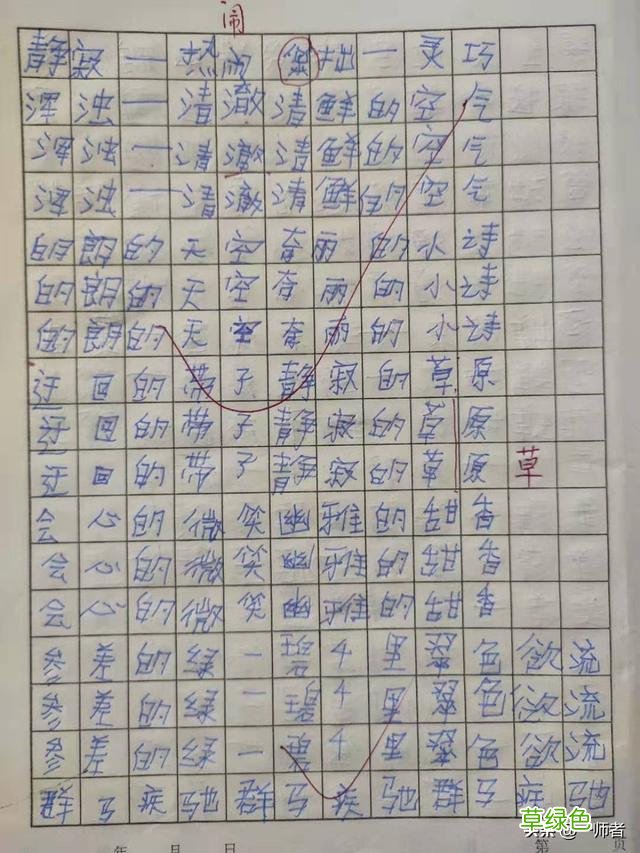 闹
静寂一热闹笨拙一灵巧
浑浊一清澈清鲜的空气
浑浊一清澈清鲜的空气
浑浊一清澈清鲜的空气
明朗的天空奇丽的小诗
明朗的天空奇丽的小诗
明朗的天空奇丽的小诗
迂回的带子静寂的草原
迂回的带子静寂的草原
迂回的带子静寂的草原 草
会心的微笑幽雅的甜香
会心的微笑幽雅的甜香
会心的微笑幽雅的甜香
参差的绿一碧千里翠色欲流
参差的绿一碧千里翠色欲流
参差的绿一碧千里翠色欲流
群马疾驰群马疾驰群马疾驰
草绿色
头条 @一师者
年 月 日 第 页